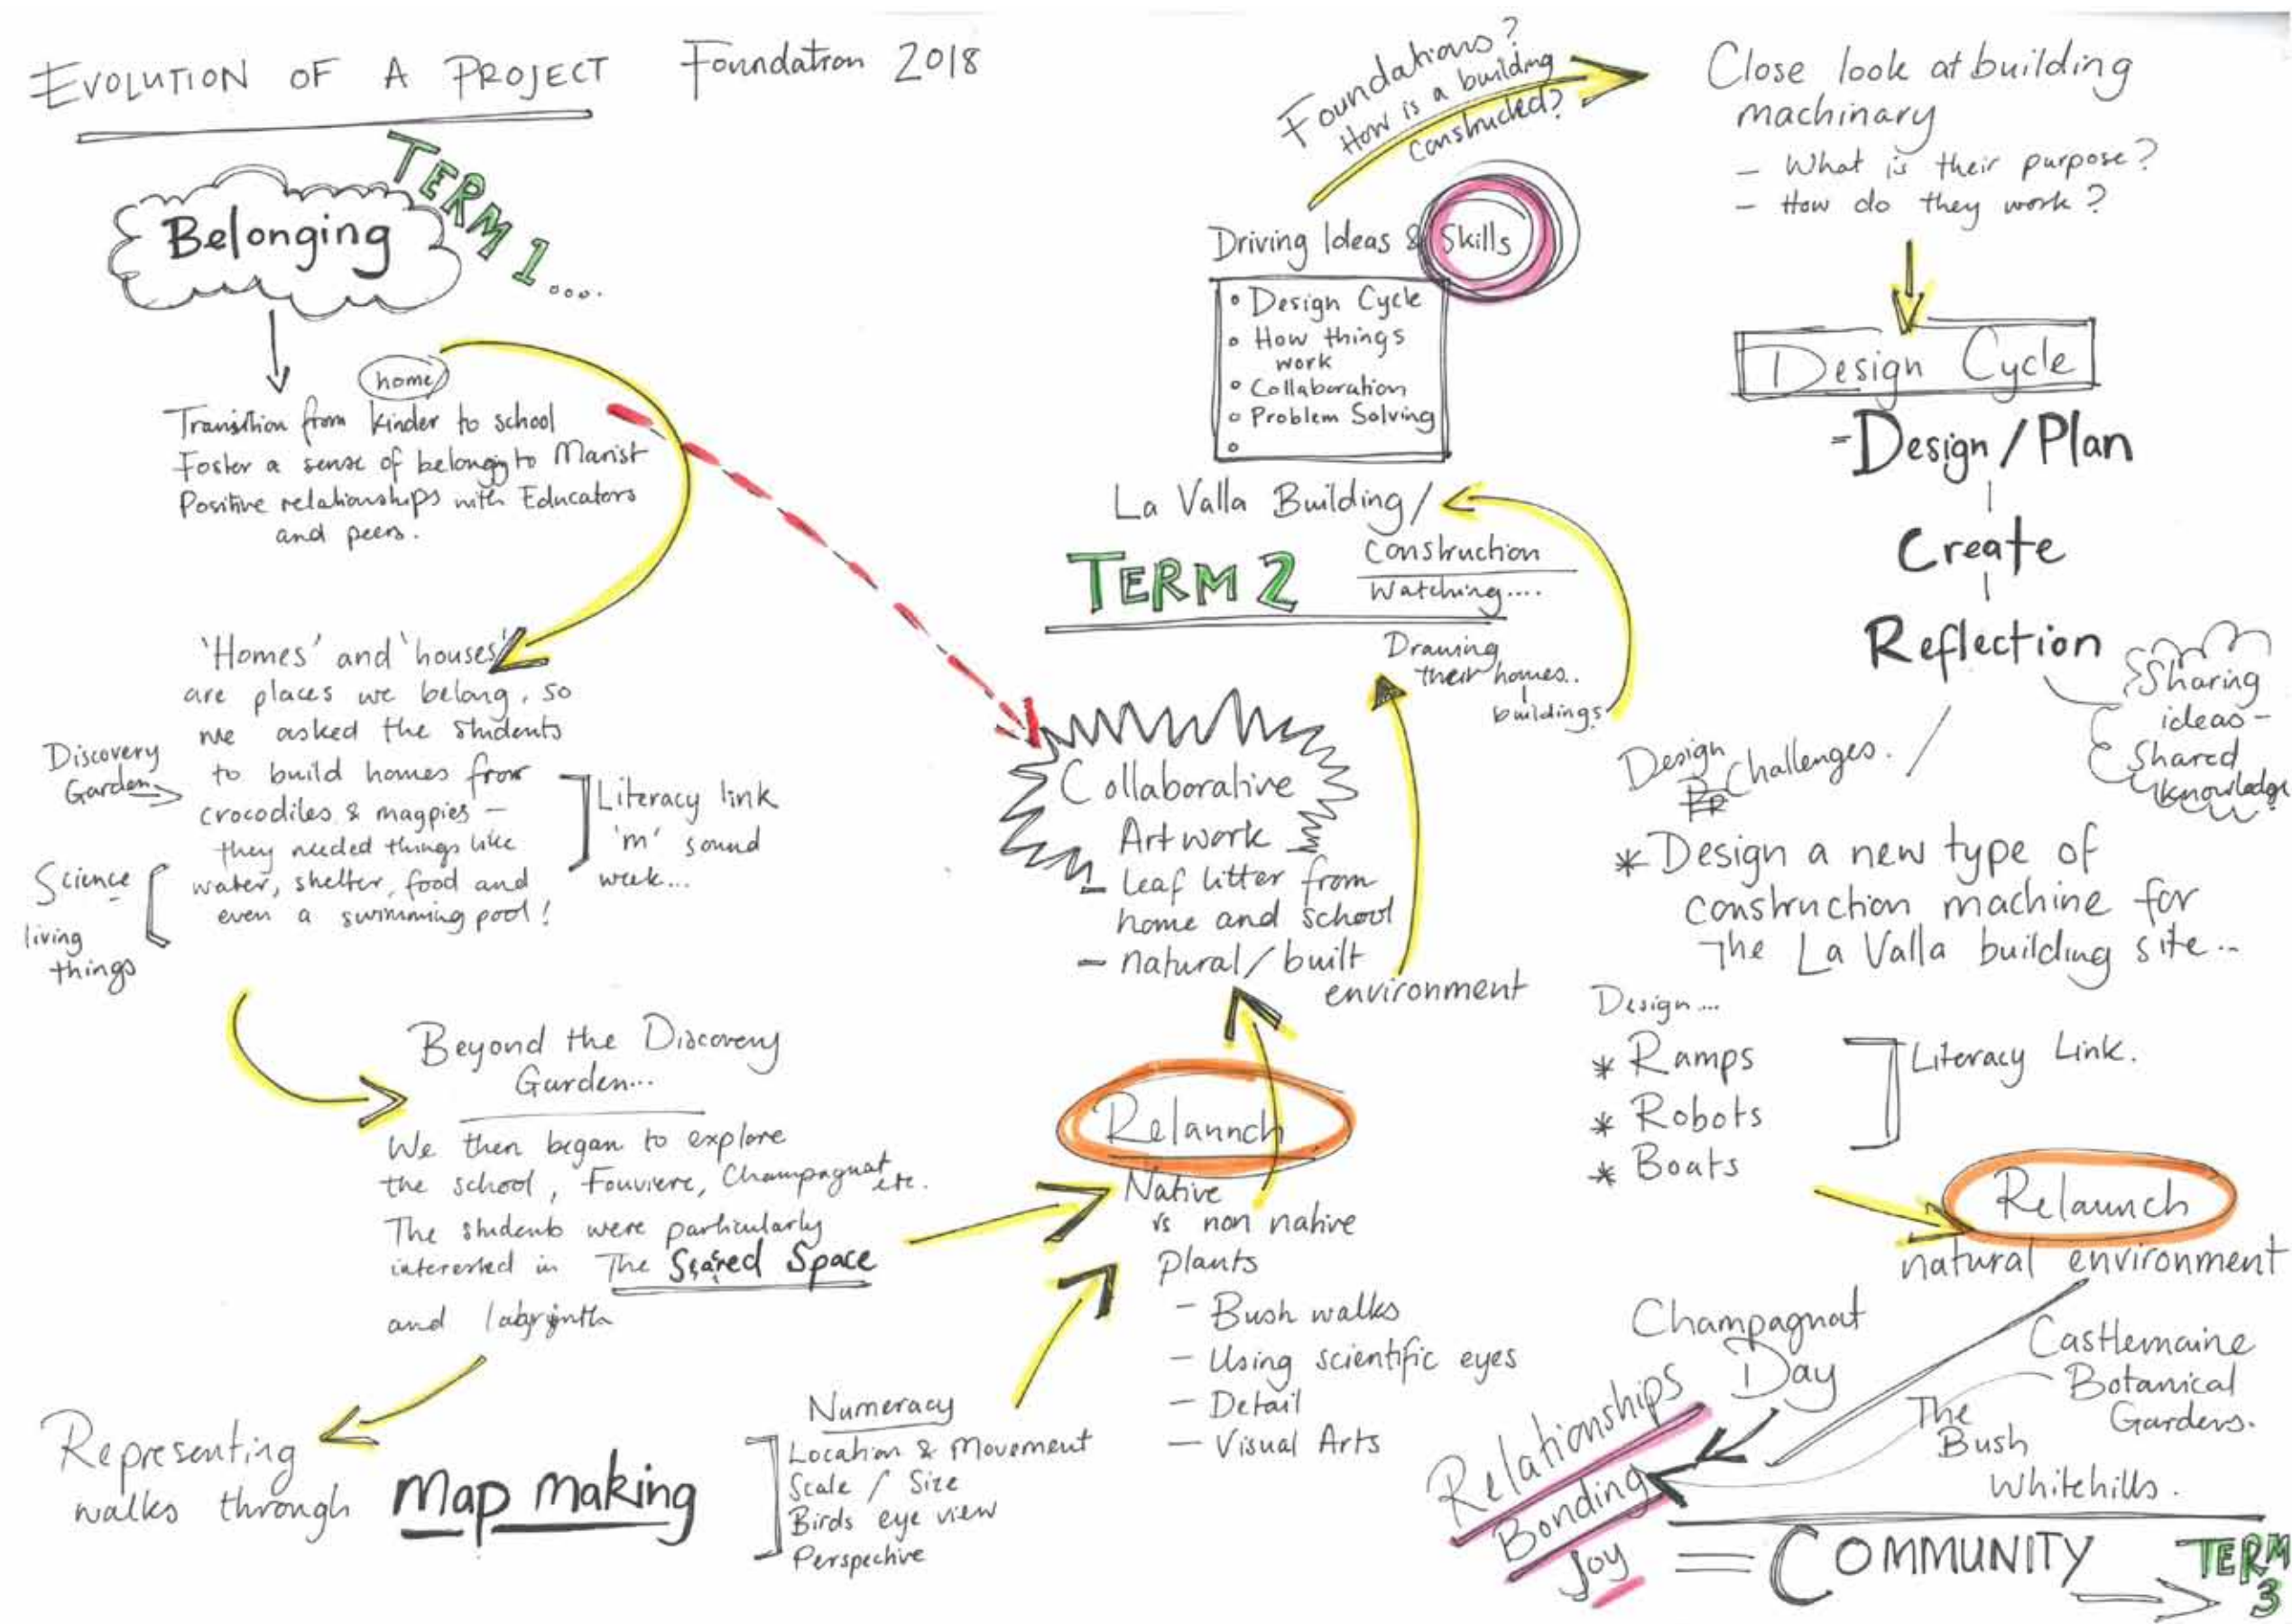 EVOLUTION OF A PROJECT Foundation 2018
TERM 1....
Belonging
home
Transition from kinder to school
Foster a sense of belonging to Marist
Positive relationships with Educators
and peers.
'Homes' and 'houses'
are places we belong, so
we asked the students
to build homes from
crocodiles & magpies –
they needed things like
water, shelter, food and
even a swimming pool!
Discovery
Garden
Science
living
things
Literacy link
'm' sound
week...
Beyond the Discovery
Garden...
We then began to explore
the school, Fouviere, Champagnat etc.
The students were particularly
interested in The Scared Space
and labyrinth
Representing
walks through Map Making
Numeracy
Location & Movement
Scale / Size
Birds eye view
Perspective
Relaunch
Native
vs non native
Plants
- Bush walks
- Using scientific eyes
- Detail
- Visual Arts
Collaborative
Artwork
- Leaf litter from
home and school
- natural/built
environment
Drawing
their homes..
buildings
La Valla Building/
Construction
Watching....
TERM 2
Driving Ideas & Skills
• Design Cycle
• How things
work
• Collaboration
• Problem Solving
•
Foundations?
How is a building
constructed?
Close look at building
machinary
- What is their purpose?
- How do they work?
Design Cycle
-Design/Plan
Create
Reflection
Sharing
ideas -
Shared
knowledge
Design Challenges.
* Design a new type of
construction machine for
The La Valla building site...
Design...
* Ramps
* Robots
* Boats
Literacy Link.
Relaunch
natural environment
Champagnat
Day
Castlemaine
Botanical
Gardens.
The
Bush
Whitehills.
Relationships
Bonding
Joy
= COMMUNITY
TERM
3